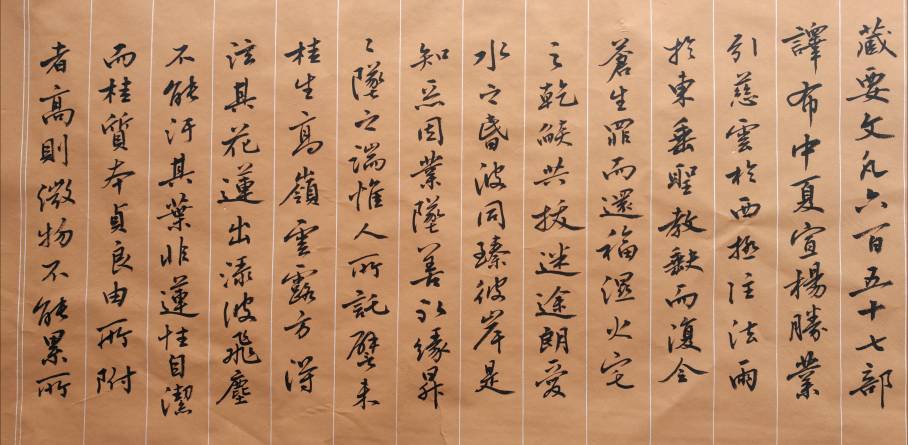 藏要文凡六百五十七部
譯布中夏宣楊勝業
引慈雲於西極注法雨
於東垂聖教缺而復全
蒼生罪而還福濕火宅
之乾燄共拔迷途朗愛
水之昏波同臻彼岸是
知惡因業墜善以緣昇
〻墜之端惟人所託譬夫
桂生高嶺雲露方得
泫其花蓮出淥波飛塵
不能汙其葉非蓮性自潔
而桂質本貞良由所附
者高則微物不能累所